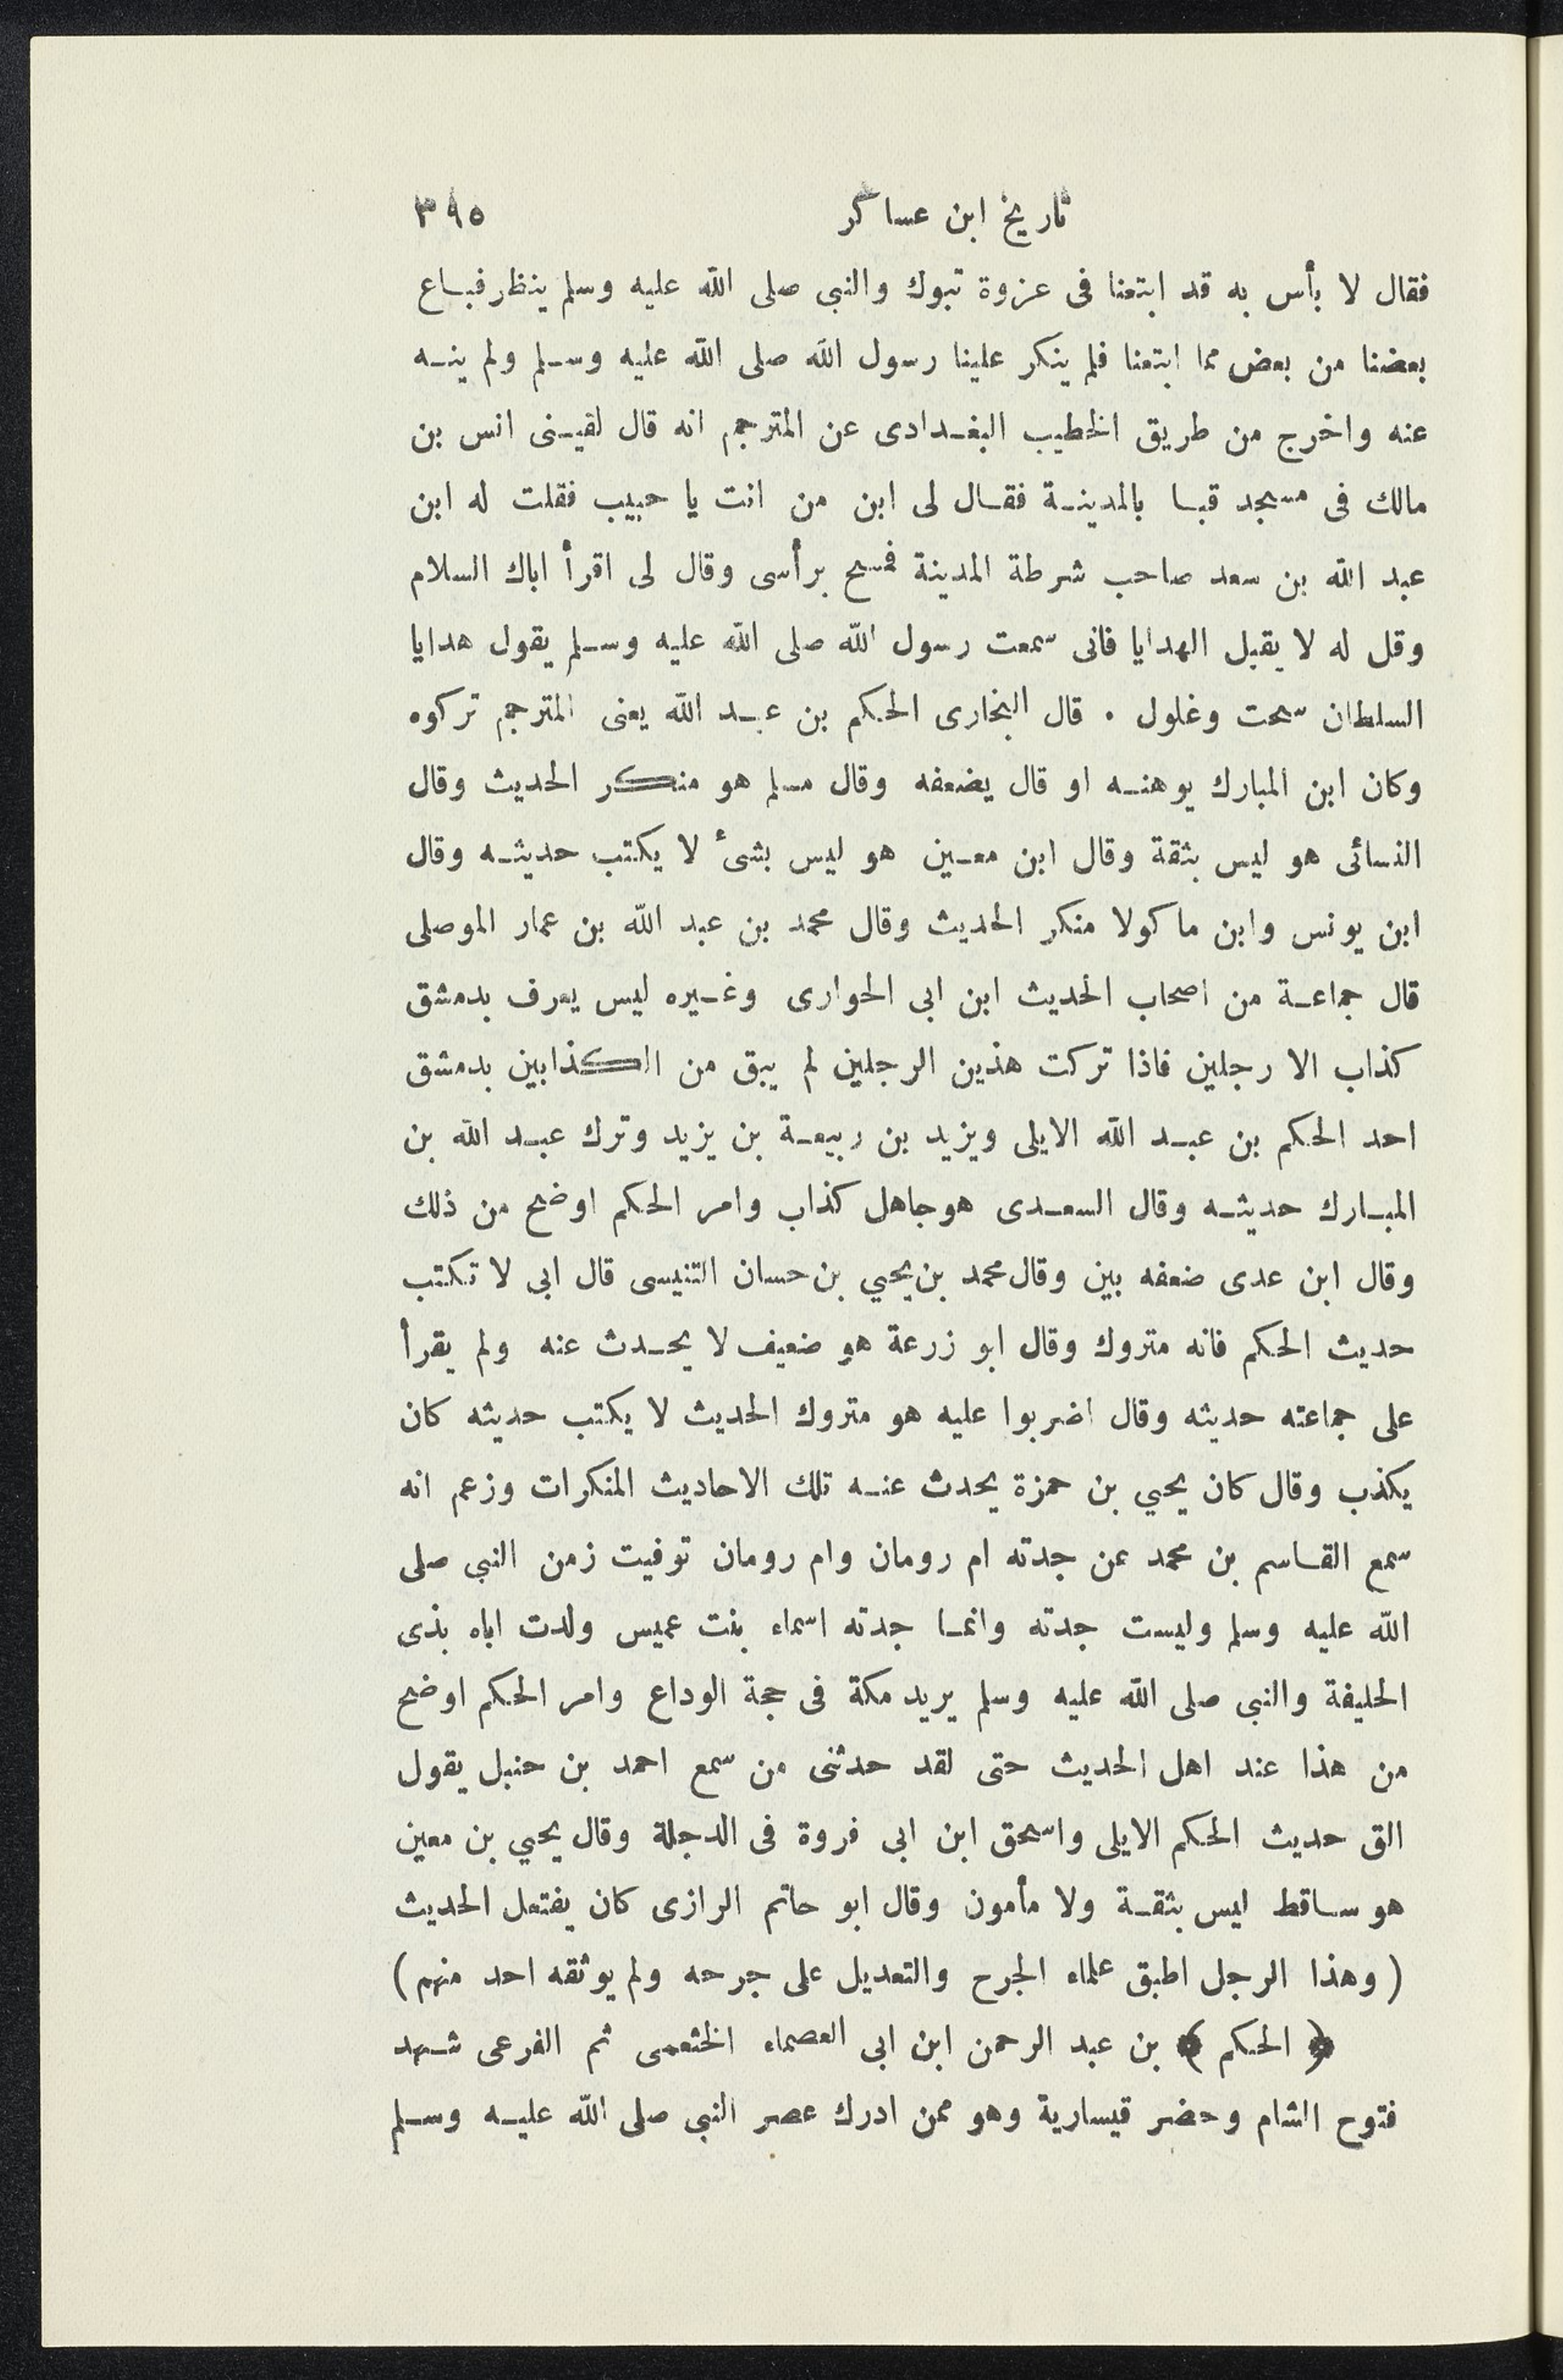 تاريخ ابن عساكر ٣٩٥
فقال لا بأس به قد ابتعنا فى عزوة تبوك والنبى صلى الله عليه وسلم ينظر فباع
بعضنا من بعض مما ابتعنا فلم ينكر علينا رسول الله صلى الله عليه وسلم ولم ينه
عنه واخرج من طريق الخطيب البغدادى عن المترجم انه قال لقينى انس بن
مالك فى مسجد قبا بالمدينة فقال لى ابن من انت يا حبيب فقلت له ابن
عبد الله بن سعد صاحب شرطة المدينة فمسح برأسى وقال لى اقرأ اباك السلام
وقل له لا يقبل الهدايا فانى سمعت رسول الله صلى الله عليه وسلم يقول هدايا
السلطان سحت وغلول . قال البخارى الحكم بن عبد الله يعنى المترجم تركوه
وكان ابن المبارك يوهنه او قال يضعفه وقال مسلم هو منكر الحديث وقال
النسائى هو ليس بثقة وقال ابن معين هو ليس بشئ لا يكتب حديثه وقال
ابن يونس وابن ماكولا منكر الحديث وقال محمد بن عبد الله بن عمار الموصلى
قال جماعة من اصحاب الحديث ابن ابى الحوارى وغيره ليس يعرف بدمشق
كذاب الا رجلين فاذا تركت هذين الرجلين لم يبق من الكذابين بدمشق
احد الحكم بن عبد الله الايلى ويزيد بن ربيعة بن يزيد وترك عبد الله بن
المبارك حديثه وقال السعدى هو جاهل كذاب وامر الحكم اوضح من ذلك
وقال ابن عدى ضعفه بين وقال محمد بن يحيي بن حسان التنيسى قال ابى لا تكتب
حديث الحكم فانه متروك وقال ابو زرعة هو ضعيف لا يحدث عنه ولم يقرأ
على جماعته حديثه وقال اضربوا عليه هو متروك الحديث لا يكتب حديثه كان
يكذب وقال كان يحيي بن حمزة يحدث عنه تلك الاحاديث المنكرات وزعم انه
سمع القاسم بن محمد عن جدته ام رومان وام رومان توفيت زمن النبي صلى
الله عليه وسلم وليست جدته وانما جدته اسماء بنت عميس ولدت اباه بذى
الحليفة والنبى صلى الله عليه وسلم يريد مكة فى حجة الوداع وامر الحكم اوضح
من هذا عند اهل الحديث حتى لقد حدثنى من سمع احمد بن حنبل يقول
الق حديث الحكم الايلى واسحق ابن ابى فروة فى الدجلة وقال يحيي بن معين
هو ساقط ليس بثقة ولا مأمون وقال ابو حاتم الرازى كان يفتعل الحديث
( وهذا الرجل اطبق علماء الجرح والتعديل على جرحه ولم يوثقه احد منهم )
﴿ الحكم ﴾ بن عبد الرحمن ابن ابى العصماء الخثعمى ثم الفرعى شهد
فتوح الشام وحضر قيسارية وهو ممن ادرك عصر النبي صلى الله عليه وسلم